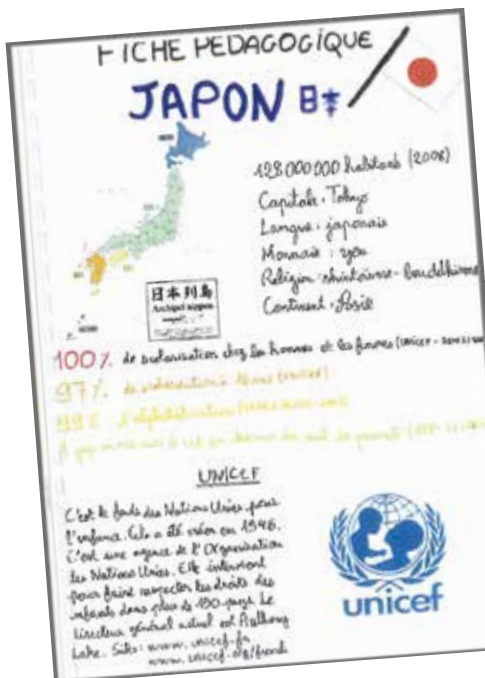 FICHE PEDAGOGIQUE
JAPON 日本
128 000 000 habitants (2008)
Capitale : Tokyo
Langue : japonais
Monnaie : yen
Religion : shintoïsme - bouddhisme
Continent : Asie
日本列島
Archipel nippon
100% de scolarisation chez les hommes et les femmes (UNICEF
97% de scolarisation à
99% d'alphabétisation
UNICEF
C'est le fonds des Nations Unies pour
l'enfance. Cela a été créer en 1946.
C'est une agence de l'Organisation
des Nations Unies. Elle intervient
pour faire respecter les droits des
enfants dans plus de 190 pays. Le
directeur général actuel est Anthony
Lake. Sites : www.unicef.fr
www.unicef.org/french
unicef